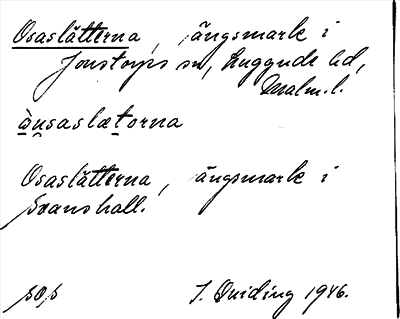 Osaslätterna, ängsmark i
Jonstorps sn, Luggude hd,
Malm.l.
ùsaslætorna
Osaslätterna, ängsmark i
Svanshall.
J. Quiding 1946.